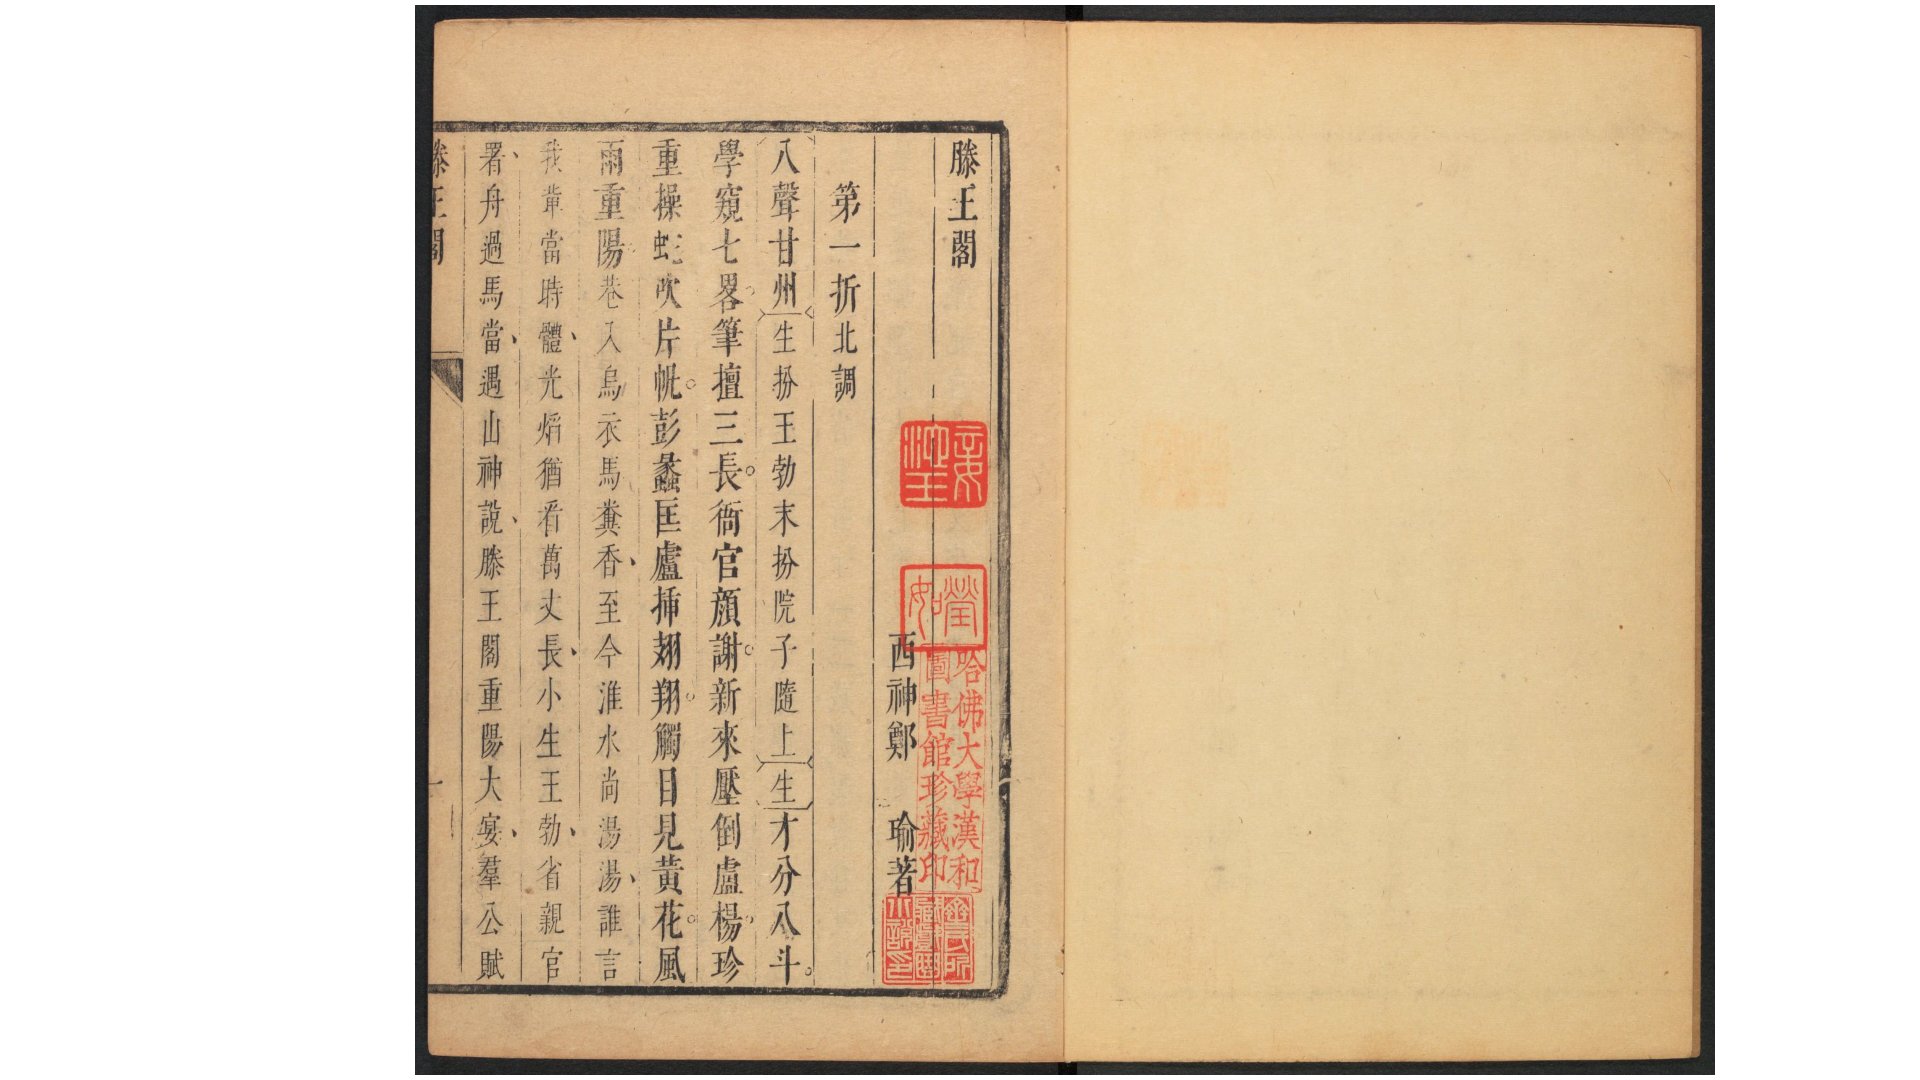 滕王閣
西神鄭　瑜著
第一折北調
八聲甘州生扮王勃末扮院子隨上生才分八斗。
學窺七畧。筆擅三長。衙官顏謝。新來壓倒盧楊。珍
重操虵吹片帆。彭蠡匡廬揷翅翔。觸目見黃花。風
雨重陽。巷入烏衣馬糞香、至今淮水尚湯湯、誰言
我輩當時體、光焰猶看萬丈長、小生王勃、省親官
署、舟過馬當、遇山神說、滕王閣重陽大宴、羣公賦
滕王閣
一
妾
王
瑩
如
哈佛大學漢和
圖書館珍藏印
齋
所
藏
小說